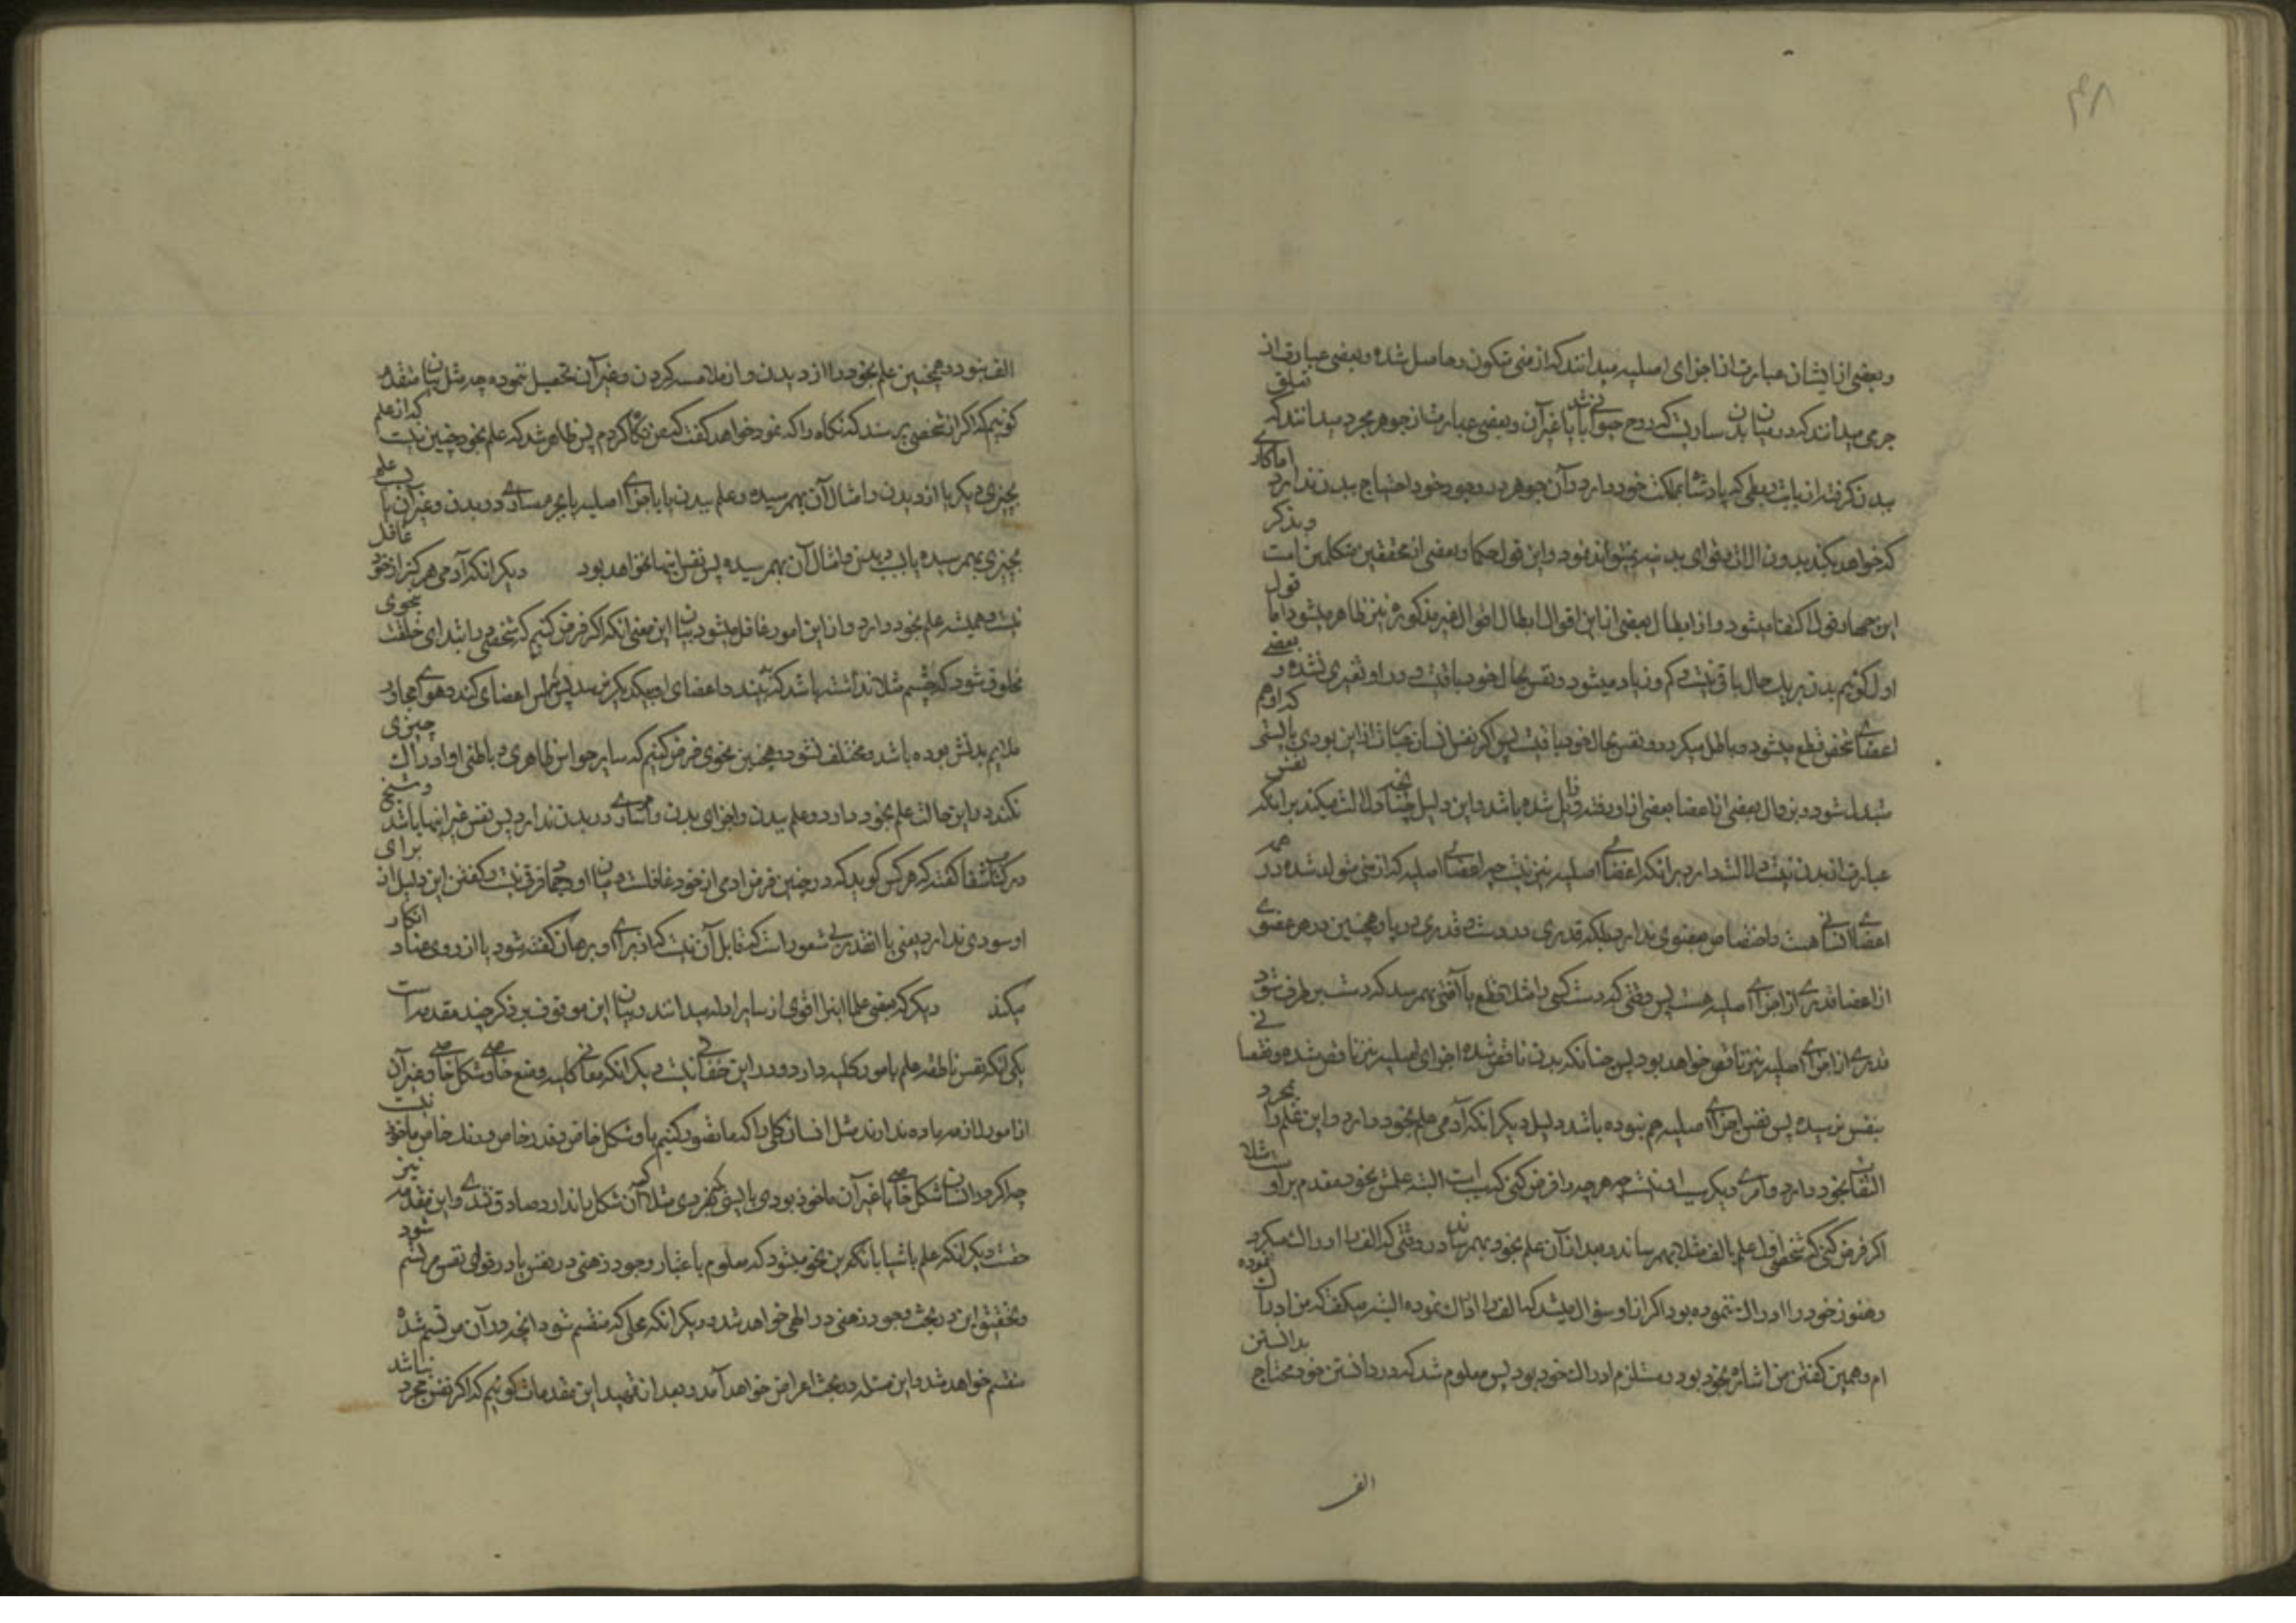 ۴۸
وبعضی از ایشان عبارت از اجزای اصلیه میدانند که از منی متکون وحاصل شده وبعضی عبارت از
جرمی میدانند که در میان بدن ساریست که روح حیوانی باشد یا غیر آن وبعضی عبارت از جوهر مجرد میدانند که تعلق
ببدن گرفته از بابت تعلقی که پادشاه بمملکت خود دارد وآن جوهر در وجود خود احتیاج ببدن ندارد اما کاری
که خواهد بکند بدون آلات وقوای بدنیه نمیتواند نمود واین قول حکما وبعضی از محققین متکلمین است وبذکر
این چهار قول اکتفا میشود واز ابطال بعضی از این اقوال ابطال اقوال غیر مذکوره نیز ظاهر میشود اما قول
اول گوئیم بدن بر یک حال باقی نیست وکم وزیاد میشود ونفس بحال خود باقیست ودر او تغیری نشده وبعضی
اعضای شخص قطع میشود وباطل میگردد ونفس بحال خود باقیست پس اگر نفس انسان عبارت از این بودی بایستی که او هم
متبدل شود وبزوال بعضی از اعضا بعضی از او رفته وزایل شده باشد واین دلیل چنانچه دلالت میکند بر آنکه نفس
عبارت از بدن نیست دلالت دارد بر آنکه اعضای اصلیه نیز نیست چه اعضای اصلیه که از منی متولد شده در همه
اعضای انسانی هست واختصاص بعضوی ندارد بلکه قدری در دست وقدری در پا وهمچنین در هر عضوی
از اعضا قدری از اجزای اصلیه هست پس وقتی که دست کسی را مثلا قطع یا آفتی بهم رسید که دستش برطرف شود
قدری از اجزای اصلیه نیز ناقص خواهد بود پس چنانکه بدن ناقص شده اجزای اصلیه نیز ناقص شده ونقصانی
بنفس نرسیده پس نفس اجزای اصلیه هم نبوده باشد دلیل دیگر آنکه آدمی علم بخود دارد واین علم را بمجرد
التفات بخود دارد وامری دیگر سبب او نیست چه هر چه را فرض کنی که سبب است البته علمش بخود مقدم بر اوست مثلا
اگر فرض کنی که شخصی اول علم بالف مثلا بهم رساند وبعد از آن علم بخود بهم رساند در وقتی که الف را ادراک میکرد
وهنوز خود را ادراک ننموده بود اگر از او سؤال میشد که الف را ادراک نموده البته میگفت که من ادراک نموده
ام وهمین گفتن من اشاره بخود بود ومستلزم ادراک خود بود پس معلوم شد که در دانستن خود محتاج بدانستن
الف
الف نبود وهمچنین علم بخود را از دیدن واز ملامسه کردن وغیر آن تحصیل ننموده چه مثل بیان متقدم
گوئیم که اگر از شخصی پرسند که نگاه را که نمود خواهد گفت که من نگاه کردم پس ظاهر شد که علم بخود چنین نیست که از علم
بچیزی دیگر یا از دیدن وامثال آن بهم رسیده وعلم ببدن یا باجزای اصلیه یا بجرم ساری در بدن وغیر آن یا بسبب علم
بچیزی بهم رسیده یا بسبب دیدن وامثال آن بهم رسیده پس نفس اینها نخواهد بود دیگر آنکه آدمی هرگز از خود غافل
نیست وهمیشه علم بخود دارد واز این امور غافل میشود بیان این معنی آنکه اگر فرض کنیم که شخصی در ابتدای خلقت بنحوی
مخلوق شود که چشم مثلا نداشته باشد که ببیند واعضای او بیکدیگر نرسد پس لمس اعضای کند وهوای مجاور
ملایم بدنش بوده باشد ومختلف نشود وهمچنین بنحوی فرض کنیم که سایر حواس ظاهری وباطنی او ادراک چیزی
نکند در این حالت علم بخود دارد وعلم ببدن واجزای بدن وامر ساری در بدن ندارد پس نفس غیر اینها باشد وشیخ
در کتاب شفا گفته که هر کس گوید که در چنین فرض آدمی از خود غافلست میان او وجماد فرقی نیست وگفتن این دلیل از برای
او سودی ندارد یعنی یا آنقدر بی شعور است که قابل آن نیست که از برای او برهان گفته شود یا از روی عناد انکار
میکند دیگر که بعضی علما اینرا اقوی از سایر ادله میدانند وبیان این موقوف بر ذکر چند مقدمه است
یکی آنکه نفس ناطقه علم بامور کلیه دارد ودر این خفائی نیست دیگر آنکه معانی کلیه وضع خاصی وشکل خاصی وغیر آن
از امور لازمه ماده ندارند مثل انسان کلی را که ما تصور کنیم با او شکل خاص وقدر خاص ورنگ خاص ماخوذ نیست
چه اگر در انسان شکل خاصی یا غیر آن ماخوذ بودی بایستی که بفردی مثلا که آن شکل را ندارد صادق نشدی واین مقدمه نیز
حقست دیگر آنکه علم باشیا بانگه این نحو میشود که معلوم باعتبار وجود ذهنی در نفس یا در قوای نفس مرتسم شود
وتحقیق این در بحث وجود ذهنی در الهی خواهد شد ودیگر آنکه محلی که منقسم شود آنچه در آن مرتسم شده
منقسم خواهد شد واین مسئله در بحث اعراض خواهد آمد وبعد از تمهید این مقدمات گوئیم که اگر نفس مجرد نباشد